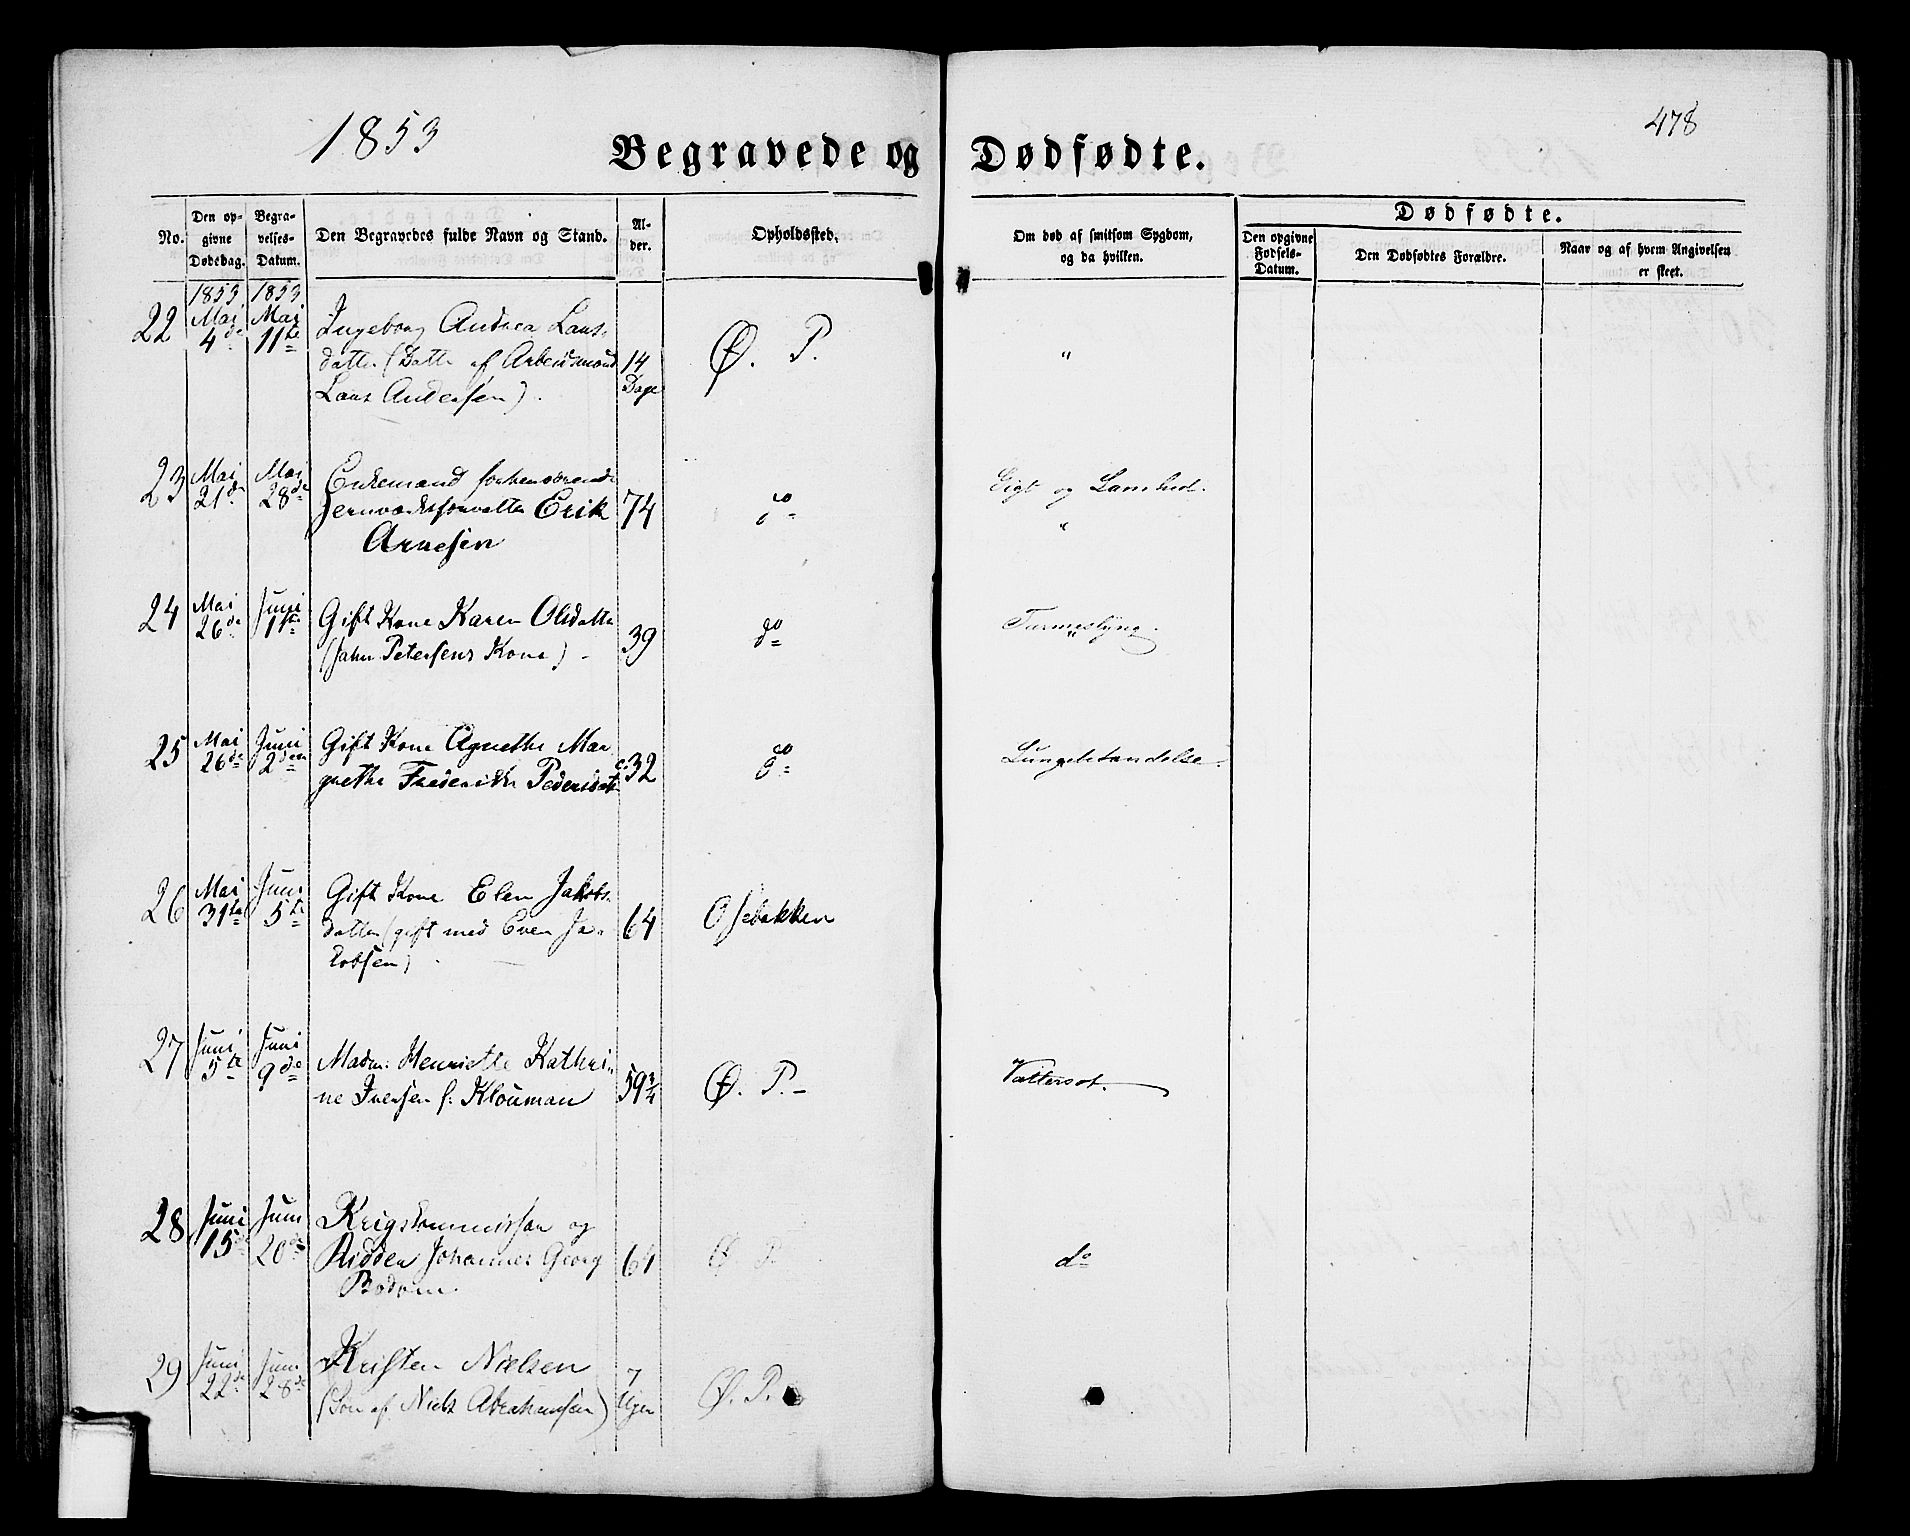 1853
478
Begravede og Dødfødte.
No.
Den op-
givne
Dødsdag.
Begra-
velses-
Datum.
Den Begravedes fulde Navn og Stand.
Al-
der.
Opholdssted.
Om død af smitsom Sygdom,
og da hvilken.
Dødfødte.
Den opgivne
Fødsels-
Datum.
Den Dødfødtes Forældre.
Naar og af hvem Angivelsen
er skeet.
1853 1853
22 Mai 4de Mai 11te Ingeborg Andrea Lars-
datter (Datter af Arbeidsmand 14 Ø. P. "
Lars Andersen). Dage
23 Mai 21de Mai 28de Enkemand forhenværende Gigt og Lamhed.
Jernværksforvalter Erik 74 do "
Arnesen
24 Mai 26de Juni 1ste Gift Kone Karen Olsdatter
(Jahn Petersens Kone) - 39 do
25 Mai 26de Juni 2den Gift Kone Agnethe Mar-
grethe Frederikke Pedersdat. c. 32 do Lungebetændelse.
26 Mai 31te Juni 5te Gift Kone Elen Jakobs-
datter (gift med Even Ja- 64 Osebakken
kobsen).
27 Juni 5te Juni 9de Madm: Henriette Kathri-
ne Iversen f: Klouman 59 3/4 Ø. P. - Vattersot.
28 Juni 15de Juni 20de Krigskommissær og
Ridder Johannes Georg 64 Ø P do
Bodom.
29 Juni 22de Juni 28de Kristen Nielsen 7
(Søn af Niels Abrahamsen) Uger Ø. P.